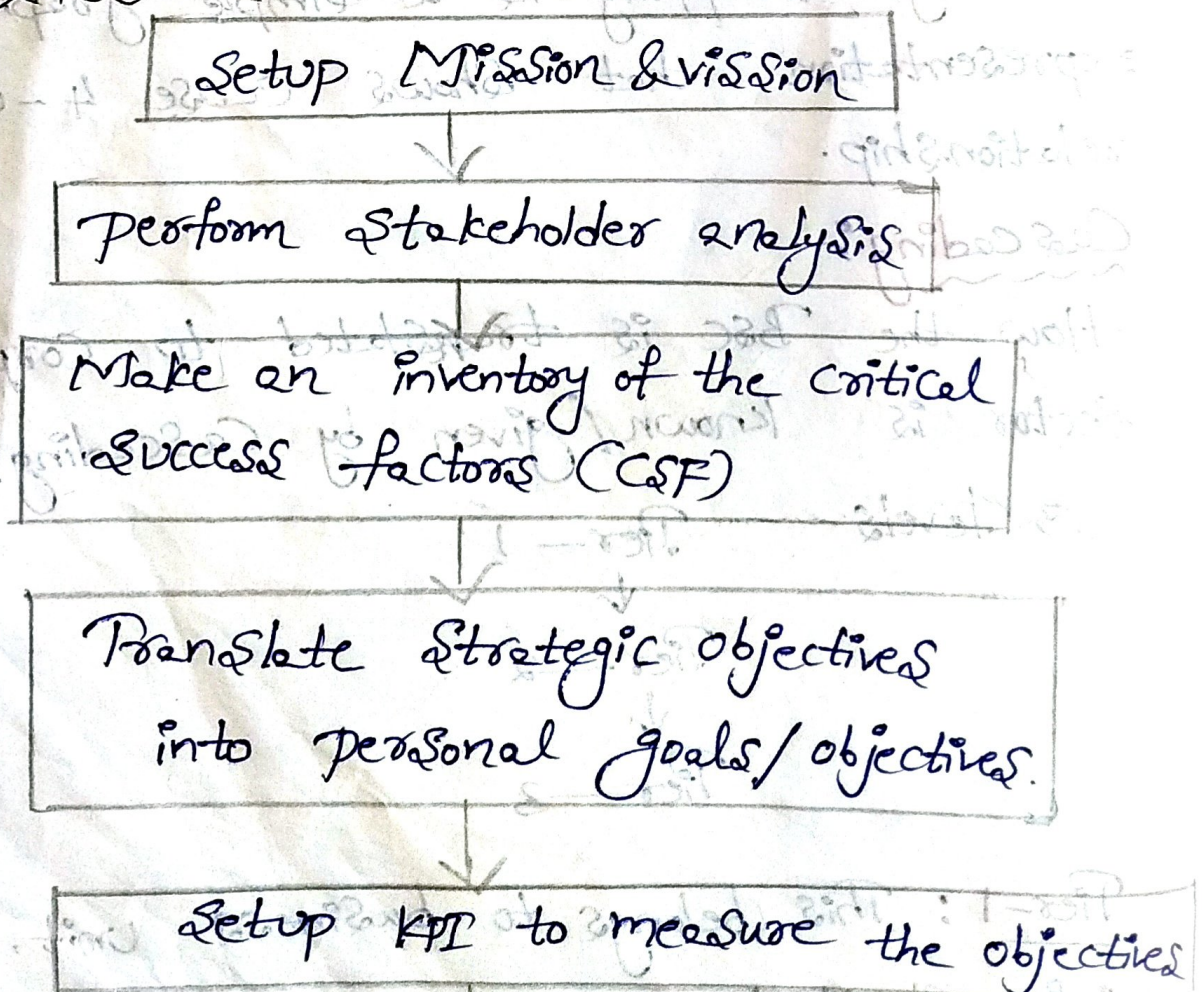 Setup Mission & vission
perform stakeholder analysis
Make an inventory of the critical
success factors (CSF)
Translate strategic objectives
into personal goals/objectives.
Setup KPI to measure the objectives